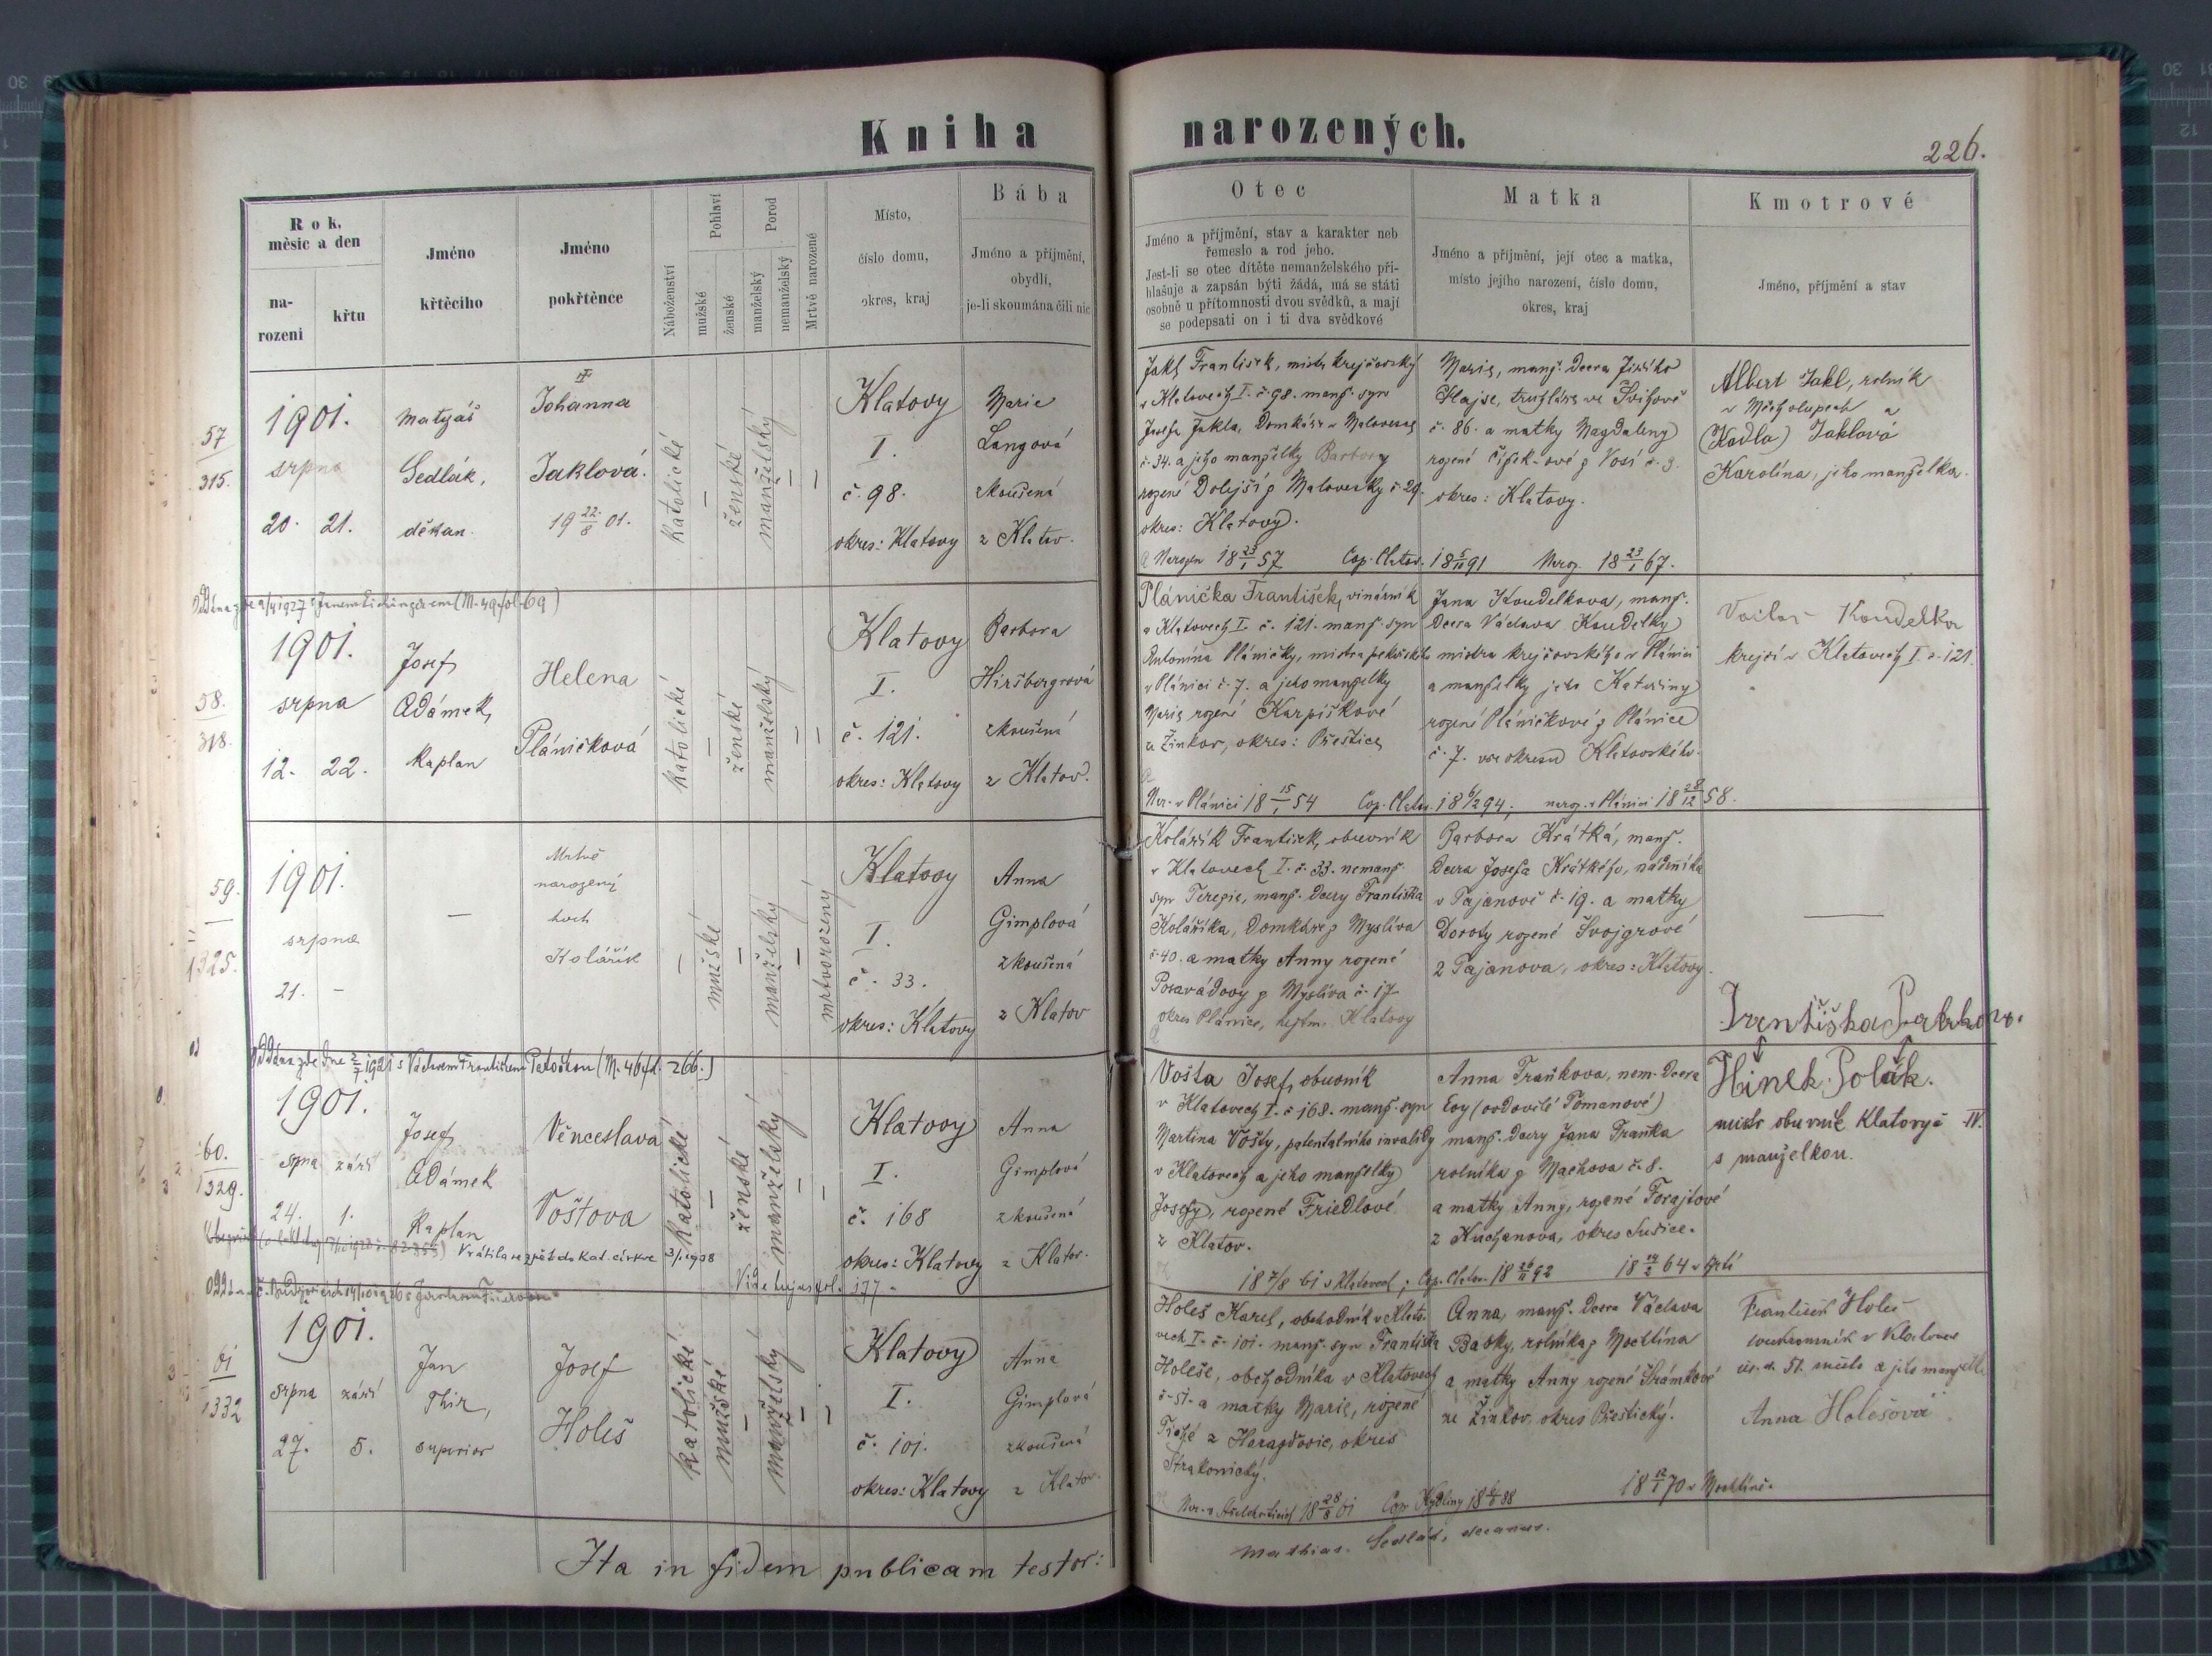 Kniha narozených.
226.
Rok, měsíc a den
narození
křtu
Jméno křtěcího
Jméno pokřtěnce
Náboženství
Pohlaví
mužské
ženské
Porod
manželský
nemanželský
Mrtvě narozené
Místo,
číslo domu,
okres, kraj
Bába
Jméno a příjmění,
obydlí,
je-li skoumána čili nic
Otec
Jméno a příjmění, stav a karakter neb
řemeslo a rod jeho.
Jest-li se otec dítěte nemanželského při-
hlašuje a zapsán býti žádá, má se státi
osobně u přítomnosti dvou svědků, a mají
se podepsati on i ti dva svědkové
Matka
Jméno a příjmění, její otec a matka,
místo jejího narození, číslo domu,
okres, kraj
Kmotrové
Jméno, příjmění a stav
57
315.
1901.
srpna
20. 21.
Matyáš
Sedlák,
děkan.
Johanna
Jaklová.
19 22/8 01.
katolické
ženské
manželský
Klatovy
I.
č. 98.
okres: Klatovy
Marie
Langová
zkoušená
z Klatov.
Jakl František, mistr krejčovský
v Klatovech I. č. 98. manž. syn
Josefa Jakla, domkáře v Malovesce
č. 34. a jeho manželky Barbory
rozené Dolejší z Malovesky č 29.
okres: Klatovy.
Narozen 18 23/1 57
Cop. Clatov. 18 5/11 91
Maria, manž. dcera Jiřího
Hajse, truhláře ve Svihově
č. 86. a matky Magdaleny
rozené Čížek-ové z Vosí č. 3.
okres: Klatovy.
Naroz. 18 23/1 67.
Albert Jakl, rolník
v Měcholupech a
(Kadla) Jaklová
Karolína, jeho manželka.
58.
318.
1901.
srpna
12. 22.
Josef
Adámek,
kaplan
Helena
Pláničková
katolické
ženské
manželský
Klatovy
I.
č. 121.
okres: Klatovy
Barbora
Hiršbergrová
zkoušená
z Klatov.
Plánička František, vinárník
v Klatovech I. č. 121. manž. syn
Antonína Pláničky, mistra pekařského
v Plánici č. 7. a jeho manželky
Marie rozené Karpíškové
ze Žinkov, okres: Přeštice
Nar. v Plánici 18 15/1 54
Cop. Clatov. 18 6/2 94;
Jana Koudelkova, manž.
dcera Václava Koudelky
mistra krejčovského v Plánici
a manželky jeho Kateřiny
rozené Pláničkové z Plánice
č. 7. vše okresu Klatovského.
naroz. v Plánici 18 28/12 58.
Koudelka
krejčí v Klatovech I. č. 121.
59.
1325.
1901.
srpna
21. –
Mrtvě
narozený
hoch
Kolářík
mužské
manželský
mrtvorozený
Klatovy
I.
č. 33.
okres: Klatovy
Anna
Gimplová
zkoušená
z Klatov
Kolářík František, obuvník
v Klatovech I. č. 33. nemanž.
syn Terezie, manž. dcery Františka
Koláříka, domkáře z Myslíva
č. 40. a matky Anny rozené
Posavádovy z Myslíva č. 17
okres Plánice, hejtm. Klatovy
Barbora Krátká, manž.
dcera Josefa Krátkého, nádeníka
v Tajanově č. 19. a matky
Doroty rozené Svojgrové
z Tajanova, okres: Klatovy.
60.
1329.
1901.
srpna září
24. 1.
Josef
Adámek
Kaplan
Věnceslava
Voštova
katolické
ženské
manželský
Klatovy
I.
č. 168
okres: Klatovy
Anna
Gimplová
zkoušená
z Klatov.
Vrátila se zpět do kat. církve
Vide hujus fol. 177
Vošta Josef, obuvník
v Klatovech I. č 168. manž. syn
Martina Vošty, patentalního invalidy
v Klatovech a jeho manželky
Josefy, rozené Friedlové
z Klatov.
Cop. Clatov. 18 26/11 92
Anna Traňkova, nem. dcera
Evy (ovdovělé Tomanové)
manž. dcery Jana Traňka
rolníka z Machova č. 8.
a matky Anny, rozené Forajtové
z Kuchanova, okres Sušice.
Hinek Polák.
mistr obuvník Klatovy IV.
s manželkou.
61
1332
1901.
srpna září
27. 5.
Jan
Thir,
superior
Josef
Holeš
katolické
mužské
manželský
Klatovy
I.
č. 101.
okres: Klatovy
Anna
Gimplová
zkoušená
z Klatov.
Holeš Karel, obchodník v Klato-
vech I. č. 101. manž. syn Františka
Holeše, obchodníka v Klatovech
č. 51. a matky Marie, rozené
Tiché z Horažďovic, okres
Strakonický.
Anna, manž. dcera Václava
Bašky, rolníka z Mochtína
a matky Anny rozené Šrámkové
ze Žinkov, okres Přeštický.
18 12/1 70 v Mochtíně.
František Holeš
v Klatovech
a jeho manželka
Anna Holešová
Ita in fidem publicam testor:
Mathias Sedlák, decanus.